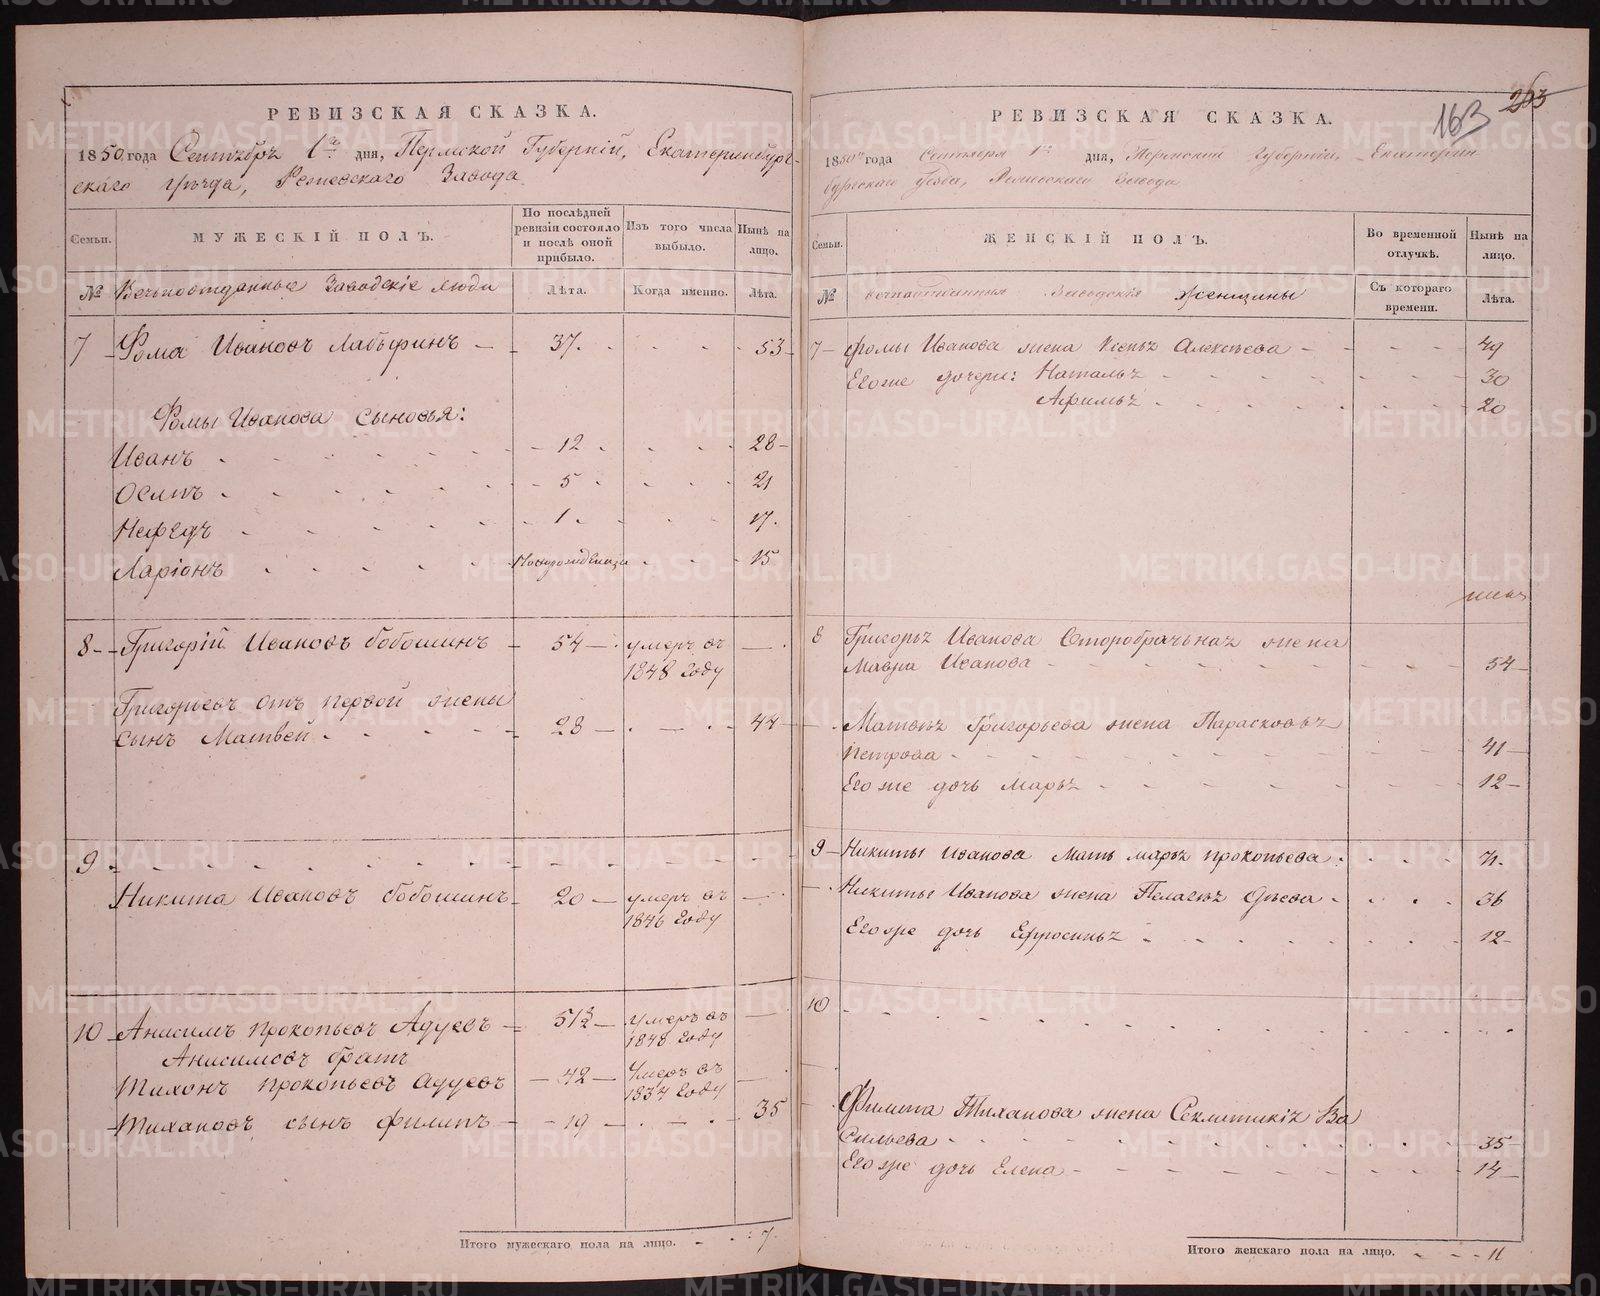 163 263
РЕВИЗСКАЯ СКАЗКА.
1850 года Сентября 1го дня, Пермской Губерніи, Екатеринбург-
скаго уѣзда, Режевскаго Завода
Семьи. МУЖЕСКІЙ ПОЛЪ. По послѣдней ревизіи состояло и послѣ оной прибыло. Изъ того числа выбыло. Нынѣ на лицо.
№ Вечьноотданные Заводскіе люди Лѣта. Когда именно. Лѣта.
7 Фома Ивановъ 37. 53
Фомы Иванова сыновья:
Иванъ 12 28
Осипъ 5 21
Нефедъ 1 17.
Ларіонъ Новорожденный 15
8 Григорій Ивановъ Бобошинъ 54 умеръ въ
1848 году
Григорьевъ отъ первой жены
сынъ Матвей 28 44
9
Никита Ивановъ Бобошинъ 20 умеръ въ
1846 году
10 Анисимъ Прокопьевъ Адуевъ 51½ умеръ въ
1848 году
Анисимовъ братъ
Тихонъ Прокопьевъ Адуевъ 42 Умеръ въ
1834 году
Тихановъ сынъ Филипъ 19 35
Итого мужескаго пола на лицо. 7.
РЕВИЗСКАЯ СКАЗКА.
1850го года Сентября 1го дня, Пермской Губерніи, Екатерин
бургскаго Уезда, Режевскаго Завода
Семьи. ЖЕНСКІЙ ПОЛЪ. Во временной отлучкѣ. Нынѣ на лицо.
№ вечноотданныя Заводскія женщины Съ котораго времени. Лѣта.
7 Фомы Иванова жена Ксенья Алексѣева 49
Его же дочери: Наталья 30
Афимья 20
8 Григорья Иванова Второбрачьная жена
Мавра Иванова 54
Матвея Григорьева жена Парасковья
Петрова 41
Его же дочь Марья 12
9 Никиты Иванова Мать Марья Прокопьева 71.
Никиты Иванова жена Пелагея 36
Его же дочь Ефросинья 12
10
Филипа Тиханова жена Секлитикія Ва
сильева 35
Его же дочь Елена 14
Итого женскаго пола на лицо. 11
METRIKI.GASO-URAL.RU